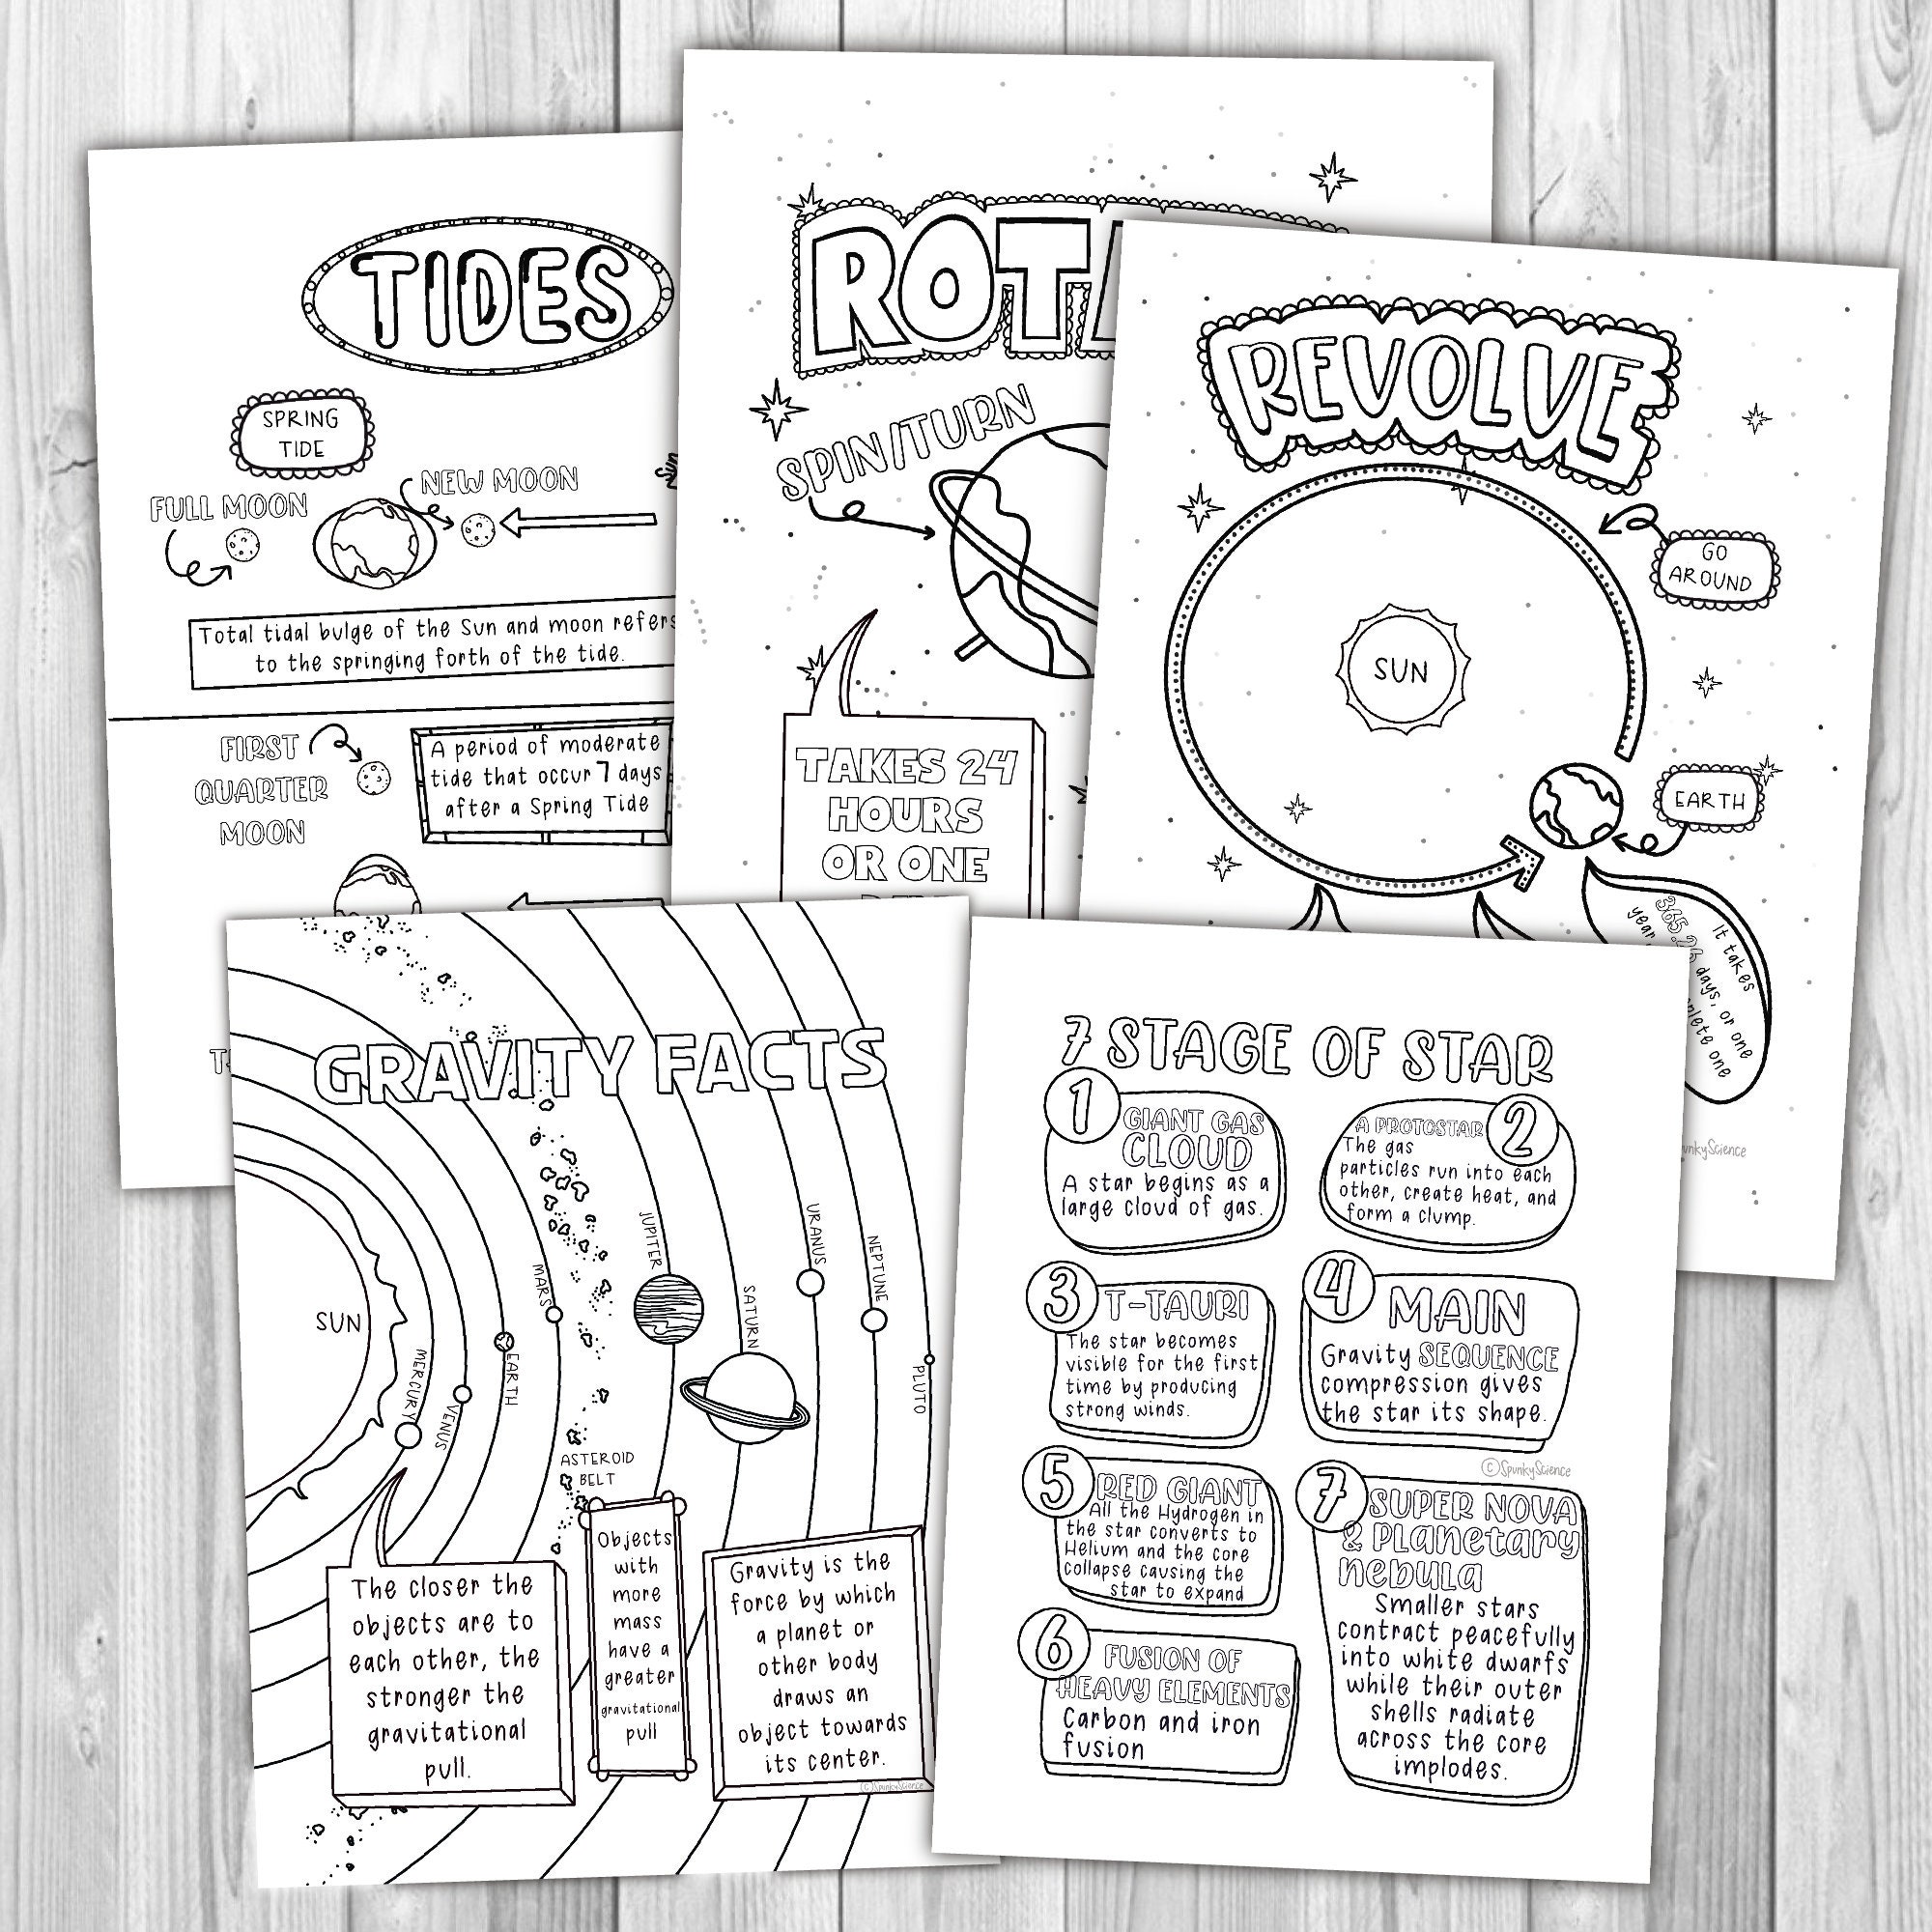 TIDES
SPRING
TIDE
FULL MOON
NEW MOON
Total tidal bulge of the Sun and moon refers
to the springing forth of the tide.
FIRST
QUARTER
MOON
A period of moderate
tide that occur 7 days
after a Spring Tide
SPIN/TURN
TAKES 24
HOURS
OR ONE
REVOLVE
GO
AROUND
SUN
EARTH
It takes
365.26 days, or one
year
one
GRAVITY FACTS
SUN
MERCURY
VENUS
EARTH
MARS
JUPITER
SATURN
URANUS
NEPTUNE
PLUTO
ASTEROID
BELT
The closer the
objects are to
each other, the
stronger the
gravitational
pull.
Objects
with
more
mass
have a
greater
gravitational
pull
Gravity is the
force by which
a planet or
other body
draws an
object towards
its center.
©SpunkyScience
7 STAGE OF STAR
1
GIANT GAS
CLOUD
A star begins as a
large cloud of gas.
2
A PROTOSTAR
The gas
particles run into each
other, create heat, and
form a clump.
3
T-TAURI
The star becomes
visible for the first
time by producing
strong winds.
4
MAIN
Gravity SEQUENCE
compression gives
the star its shape.
5
RED GIANT
All the Hydrogen in
the star converts to
Helium and the core
collapse causing the
star to expand
6
FUSION OF
HEAVY ELEMENTS
Carbon and iron
fusion
©SpunkyScience
7
SUPER NOVA
& PLanetary
nebula
Smaller stars
contract peacefully
into white dwarfs
while their outer
shells radiate
across the core
implodes.